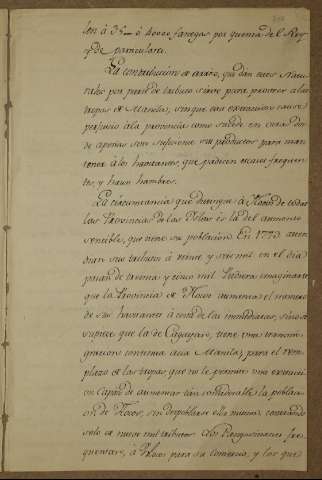 ten à 35 ô 40000 fanegas por quenta del Rey
y de particulares.
La contribucion de arroz, que dan estos Natu-
rales por parte de tributo sirve para proveer a las
tropas de Manila, sin que esta extraccion cause
perjuicio á la provincia como sucede en otras don-
de apenas son suficientes sus productos para man-
tener á los havitantes, que padecen escasez frequen-
tes, y haun hambres.
La circunstancia que distingue à Ilocos de todas
las Provincias de las Yslas es la del aumento
sensible, que tiene su poblacion. En 1773 ascen-
dian sus tributos à veinte y seis mil en el dia
pasan de treinta y cinco mil. Pudiera imaginarse
que la Provincia de Ilocos aumenta el numero
de sus havitantes à costa de las inmediatas, sino se
supiese que la de Cagayan, tiene una transmi-
gracion continua acia Manila, para el rem-
plazo de las tropas que no le permite una extraccion
capaz de aumentar tan considerable la poblaci-
on de Ilocos, sin despoblarse ella misma, contando
solo de nueve mil tributos. Los Pangasinanes fre-
quentan, à Ilocos para su comercio, y los que